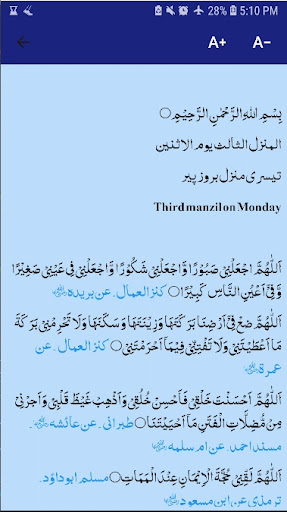 28% 5:10 PM
A+ A-
بِسْمِ اللهِ الرَّحْمٰنِ الرَّحِيْمِ○
المنزل الثالث يوم الاثنين
تیسری منزل بروز پیر
Third manzil on Monday
اَللّٰهُمَّ اجْعَلْنِيْ صَبُوْرًا وَّاجْعَلْنِيْ شَكُوْرًا وَّاجْعَلْنِيْ فِيْ عَيْنِيْ صَغِيْرًا
وَّفِيْ اَعْيُنِ النَّاسِ كَبِيْرًا○ كنز العمال۔ عن بريده
اَللّٰهُمَّ ضَعْ فِيْ اَرْضِنَا بَرَكَتَهَا وَزِيْنَتَهَا وَسَكَنَهَا وَلَا تَحْرِمْنِيْ بَرَكَةَ
مَآ اَعْطَيْتَنِيْ وَلَا تَفْتِنِّيْ فِيْمَآ اَحْرَمْتَنِيْ○ كنز العمال۔ عن
سمرة
اَللّٰهُمَّ اَحْسَنْتَ خَلْقِيْ فَاَحْسِنْ خُلُقِيْ وَاَذْهِبْ غَيْظَ قَلْبِيْ وَاَجِرْنِيْ
مِنْ مُّضِلَّاتِ الْفِتَنِ مَآ اَحْيَيْتَنَا○ طبرانی۔ عن عائشه
مسند احمد۔ عن ام سلمه
اَللّٰهُمَّ لَقِّنِيْ حُجَّةَ الْاِيْمَانِ عِنْدَ الْمَمَاتِ○ مسلم ابوداؤد۔
ترمذی عن ابن مسعود